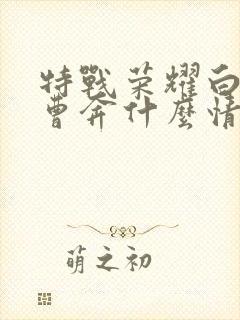 特戰荣耀白
曹奔什麼情
萌之初